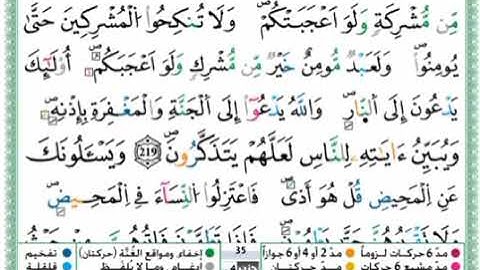 مِّن مُّشْرِكَةٍ وَلَوَ اَعْجَبَتْكُمْ وَلَا تُنكِحُوا۟ الْمُشْرِكِينَ حَتَّىٰ
يُومِنُوا۟ وَلَعَبْدٌ مُّومِنٌ خَيْرٌ مِّن مُّشْرِكٍ وَلَوَ اَعْجَبَكُمْ أُوْلَٰٓئِكَ
يَدْعُونَ إِلَى النَّارِ وَاللَّهُ يَدْعُوٓا۟ إِلَى الْجَنَّةِ وَالْمَغْفِرَةِ بِإِذْنِهِ
وَيُبَيِّنُ ءَايَٰتِهِ لِلنَّاسِ لَعَلَّهُمْ يَتَذَكَّرُونَ 219 وَيَسْـَٔلُونَكَ
عَنِ الْمَحِيضِ قُلْ هُوَ أَذًى فَاعْتَزِلُوا۟ النِّسَآءَ فِي الْمَحِيضِ
مدّ 6 حركات لزوماً مدّ 2 أو 4 أو 6 جوازاً 35 إخفاء ومواقع الغُنَّة (حركتان) تفخيم
مدّ مشبع 6 حركات مدّ حركتان إدغام، وما لا يُلفظ قلقلة